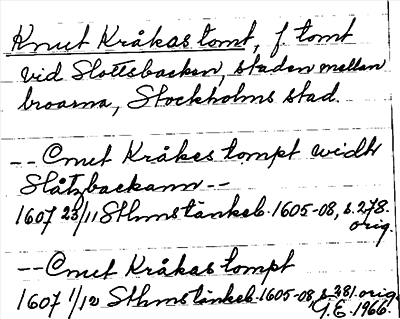 Knut Kråkas tomt, f. tomt
vid Slottsbacken, staden mellan
broarna, Stockholms stad.
-- Cnut Kråkes tompt widh
Slåtzbackann --
1607 23/11 Sthms tänkeb. 1605-08, s. 278.
orig.
-- Cnut Kråkas tompt
1607 1/12 Sthms tänkeb. 1605-08, s. 281. orig.
G.E. 1966.